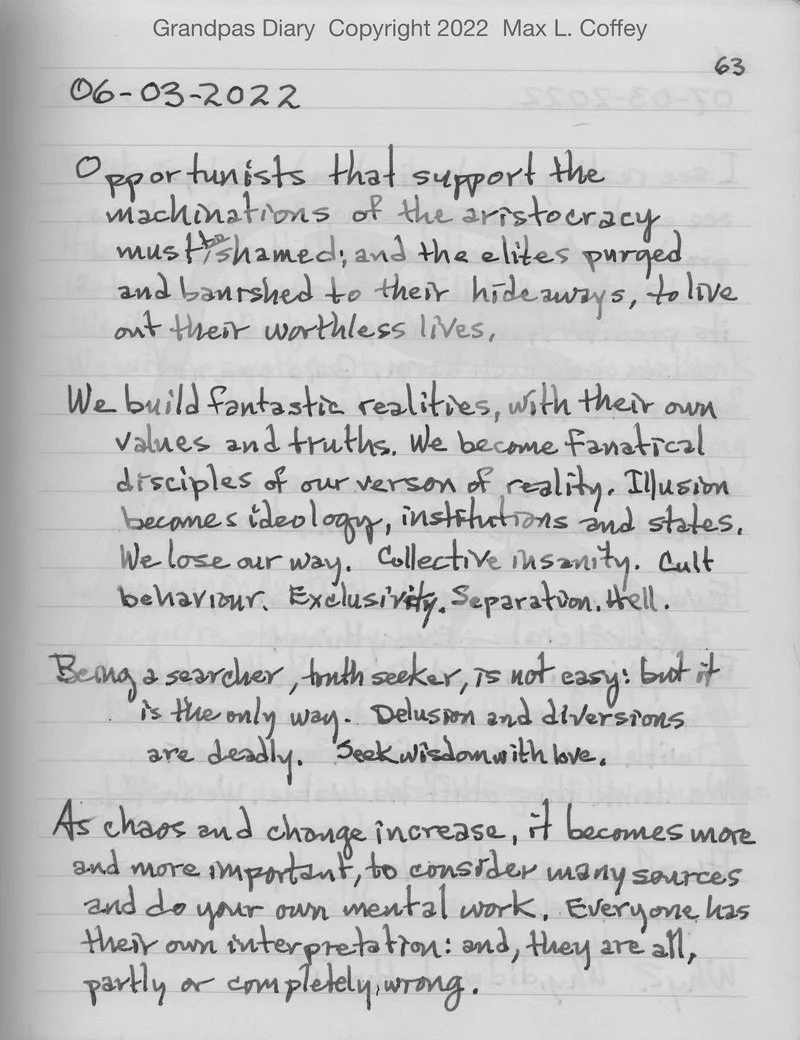 Grandpas Diary Copyright 2022 Max L. Coffey
63
06-03-2022
Opportunists that support the
machinations of the aristocracy
must be shamed; and the elites purged
and banished to their hideaways, to live
out their worthless lives.
We build fantastic realities, with their own
values and truths. We become fanatical
disciples of our verson of reality. Illusion
becomes ideology, institutions and states.
We lose our way. Collective insanity. Cult
behaviour. Exclusivity. Separation. Hell.
Being a searcher, truth seeker, is not easy: but it
is the only way. Delusion and diversions
are deadly. Seek wisdom with love.
As chaos and change increase, it becomes more
and more important, to consider many sources
and do your own mental work. Everyone has
their own interpretation: and, they are all,
partly or completely, wrong.